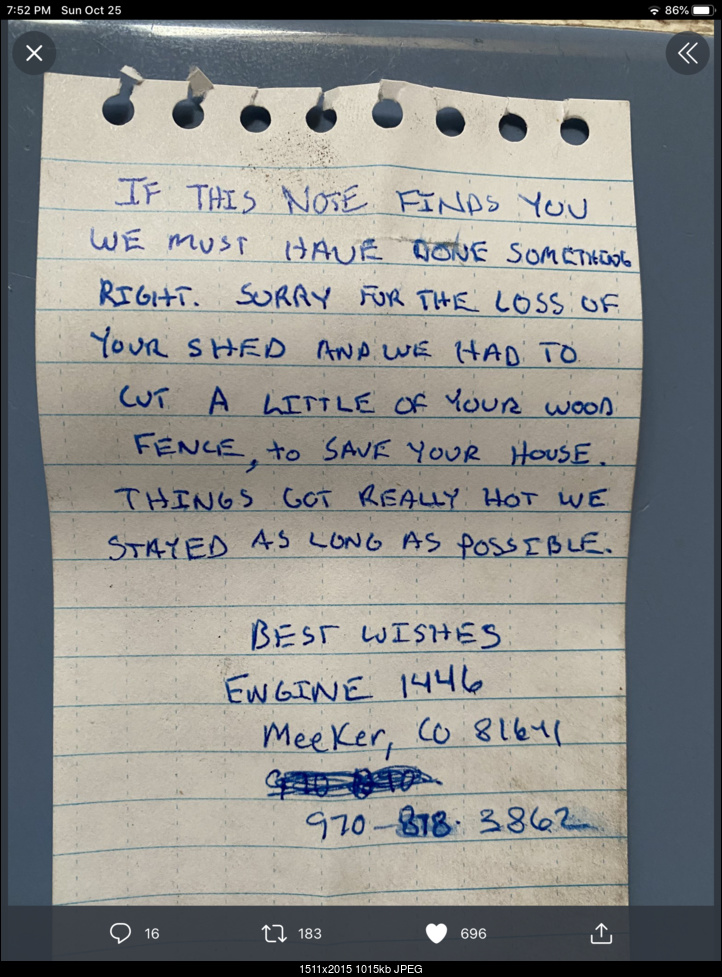 7:52 PM Sun Oct 25 86%
IF THIS NOTE FINDS YOU
WE MUST HAVE DONE SOMETHING
RIGHT. SORRY FOR THE LOSS OF
YOUR SHED AND WE HAD TO
CUT A LITTLE OF YOUR WOOD
FENCE, to SAVE YOUR HOUSE.
THINGS GOT REALLY HOT WE
STAYED AS LONG AS POSSIBLE.
BEST WISHES
ENGINE 1446
Meeker, CO 81641
970-878-3862
16 183 696
1511x2015 1015kb JPEG